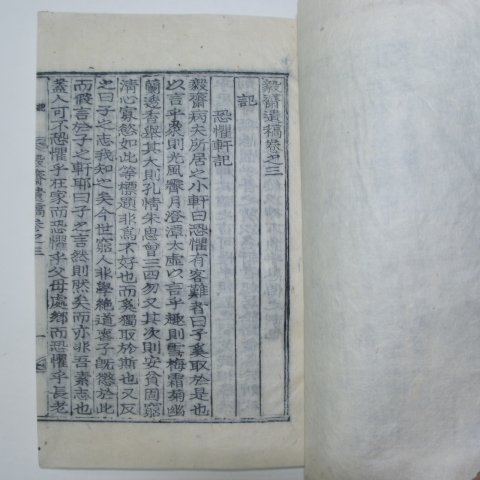 毅齋遺稿卷之三
記
恐懼軒記
毅齋病夫所居之小軒曰恐懼有客難者曰子奚取於是也
以言乎象則光風霽月澄潭太虛以言乎趣則雪梅霜菊幽
蘭逸香舉其大則孔情朱思曾三四勿又其次則安貧固窮
淸心寡慾如此等標題非爲不好也而奚獨取於斯也又反
之曰子之志我知之矣今世窮人非學絶道喪子旣慾於此
而假言於子之軒耶曰子之言然則然矣而亦非吾素志也
蓋人可不恐懼乎在家而恐懼乎父母處鄕而恐懼乎長老
毅齋遺稿卷之三 一